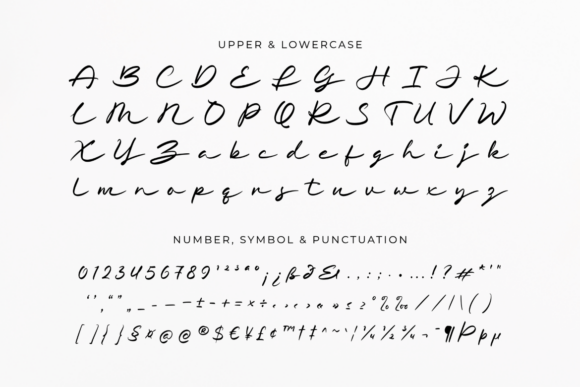 UPPER & LOWERCASE
A B C D E F G H I J K
L M N O P Q R S T U V W
X Y Z a b c d e f g h i j k
l m n o p q r s t u v w x y z
NUMBER, SYMBOL & PUNCTUATION
0 1 2 3 4 5 6 7 8 9 ¹ ² ³ ª º ¡ ¿ ß & . , : ; · • … ! ? # * ' "
‘ ’ , “ ” „ _ - – — ± - + = × ÷ ° % ‰ / / | \ ( )
[ ] { } § ¤ @ @ ® $ € ¥ £ ¢ ™ † ‡ ^ ~ ` ¦ ¼ ½ ¾ ¬ ¯ ¶ Þ þ µ